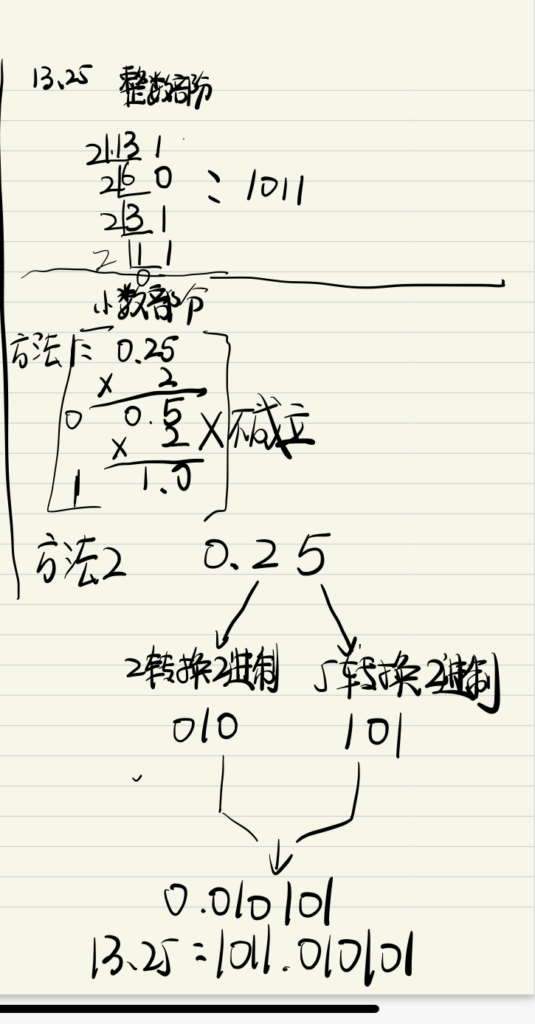 13.25 整数部阶
2 13 1
2 6 0 = 1011
2 3 1
2 1 1
0
小数部分
方法1: 0.25
× 2
0 0.5
× 2 × 不成立
1 1.0
方法2 0.25
2转换2进制 5转换2进制
010 101
0.010101
13.25=1011.010101